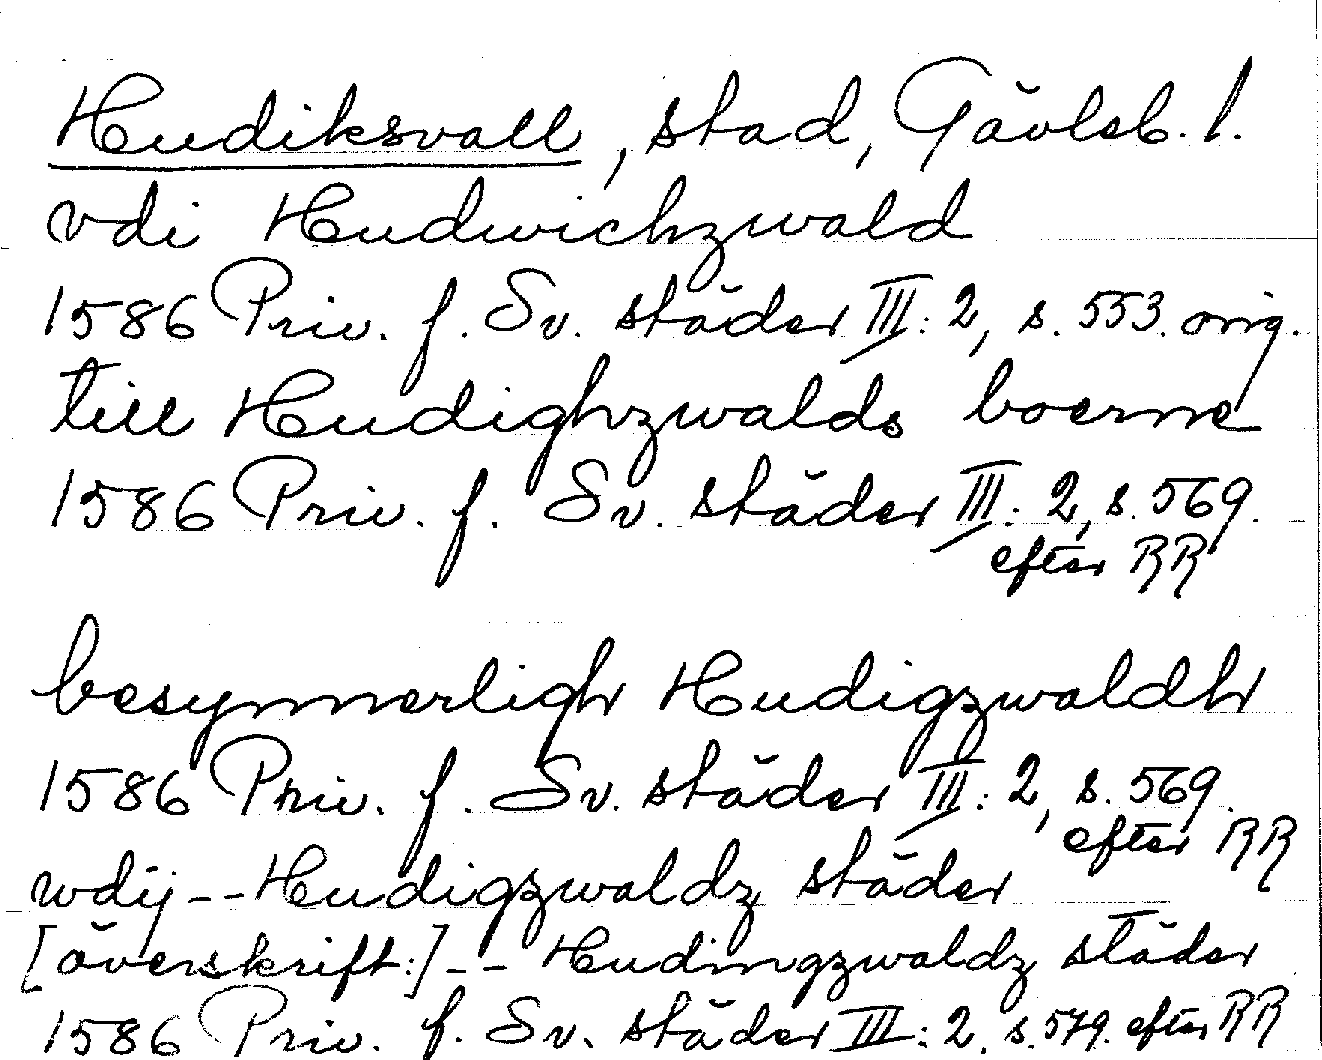 Hudiksvall, stad, Gävleb. l.
vdi Hudwichzwald
1586 Priv. f. Sv. städer III: 2, s. 553. orig.
till Hudighzwalds boerne
1586 Priv. f. Sv. städer III: 2, s. 569.
efter RR
besynnerligh Hudigzwaldh
1586 Priv. f. Sv. städer III: 2, s. 569.
efter RR
wdij -- Hudigzwaldz städer
[överskrift:] -- Hudingzwaldz städer
1586 Priv. f. Sv. städer III: 2, s. 579. efter RR